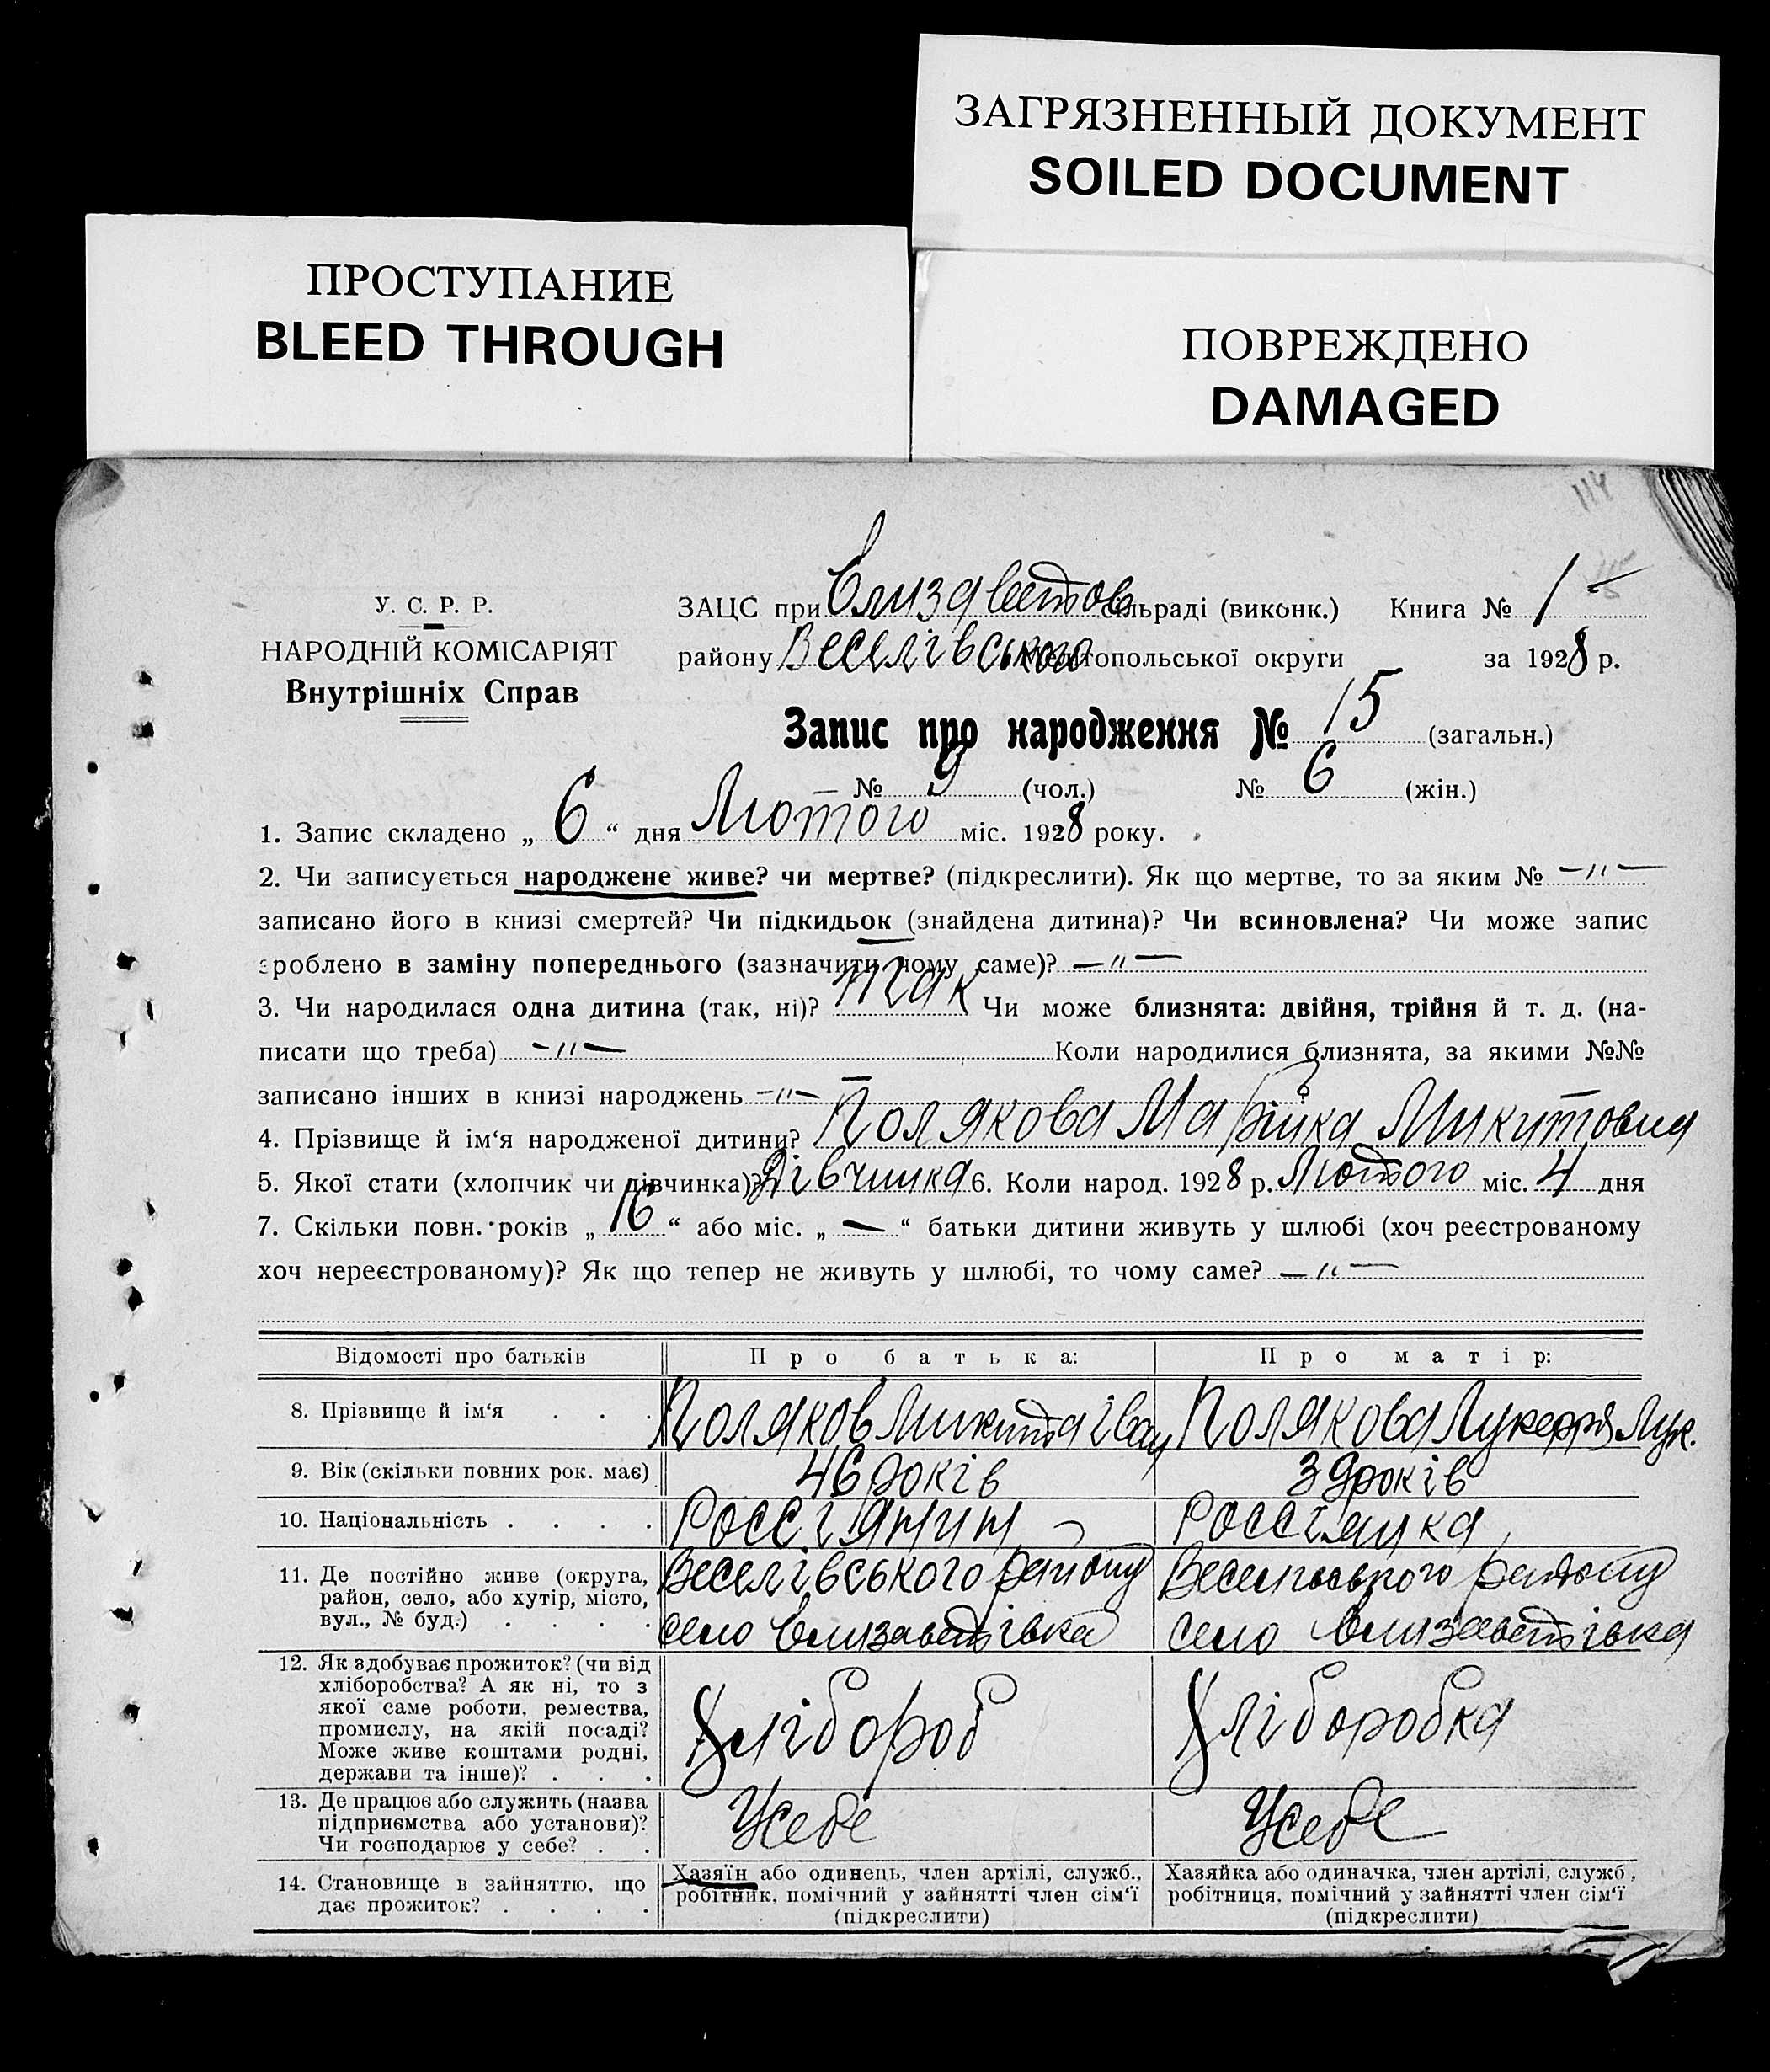 ЗАГРЯЗНЕННЫЙ ДОКУМЕНТ
SOILED DOCUMENT
ПРОСТУПАНИЕ
BLEED THROUGH
ПОВРЕЖДЕНО
DAMAGED
114
У. С. Р. Р.
НАРОДНІЙ КОМІСАРІЯТ
Внутрішніх Справ
ЗАЦС при Єлизаветов сільраді (виконк.) Книга № 1
району Веселівського Мелітопольської округи за 1928 р.
Запис про народження № 15 (загальн.)
№ 9 (чол.) № 6 (жін.)
1. Запис складено „ 6 “ дня Лютого міс. 1928 року.
2. Чи записується народжене живе? чи мертве? (підкреслити). Як що мертве, то за яким № —"—
записано його в книзі смертей? Чи підкидьок (знайдена дитина)? Чи всиновлена? Чи може запис
зроблено в заміну попереднього (зазначити чому саме)? —"—
3. Чи народилася одна дитина (так, ні)? так Чи може близнята: двійня, трійня й т. д. (на-
писати що треба) —"— Коли народилися близнята, за якими №№
записано інших в книзі народжень —"—
4. Прізвище й ім‘я народженої дитини? Полякова Марійка Микитовна
5. Якої стати (хлопчик чи дівчинка)? Дівчинка 6. Коли народ. 1928 р. Лютого міс. 4 дня
7. Скільки повн. років „ 16 “ або міс. „ — “ батьки дитини живуть у шлюбі (хоч реєстрованому
хоч нереєстрованому)? Як що тепер не живуть у шлюбі, то чому саме? —"—
Відомості про батьків Про батька: Про матір:
8. Прізвище й ім‘я . . . Поляков Микита Іван Полякова Лукерря Лук.
9. Вік (скільки повних рок. має) 46 років 39 років
10. Національність . . . . Россіянин Россіянка
11. Де постійно живе (округа, Веселівського району Веселівського району
район, село, або хутір, місто,
вул., № буд.) . . . . село Єлизаветівка село Єлизаветівка
12. Як здобуває прожиток? (чи від
хліборобства? А як ні, то з
якої саме роботи, ремества, Хлібороб Хліборобка
промислу, на якій посаді?
Може живе коштами родні,
держави та інше)? . . .
13. Де працює або служить (назва
підприємства або установи)? Усебе Усебе
Чи господарює у себе? . .
14. Становище в зайняттю, що
дає прожиток? . . . .
Хазяїн або одинець, член артілі, служб.,
робітник, помічний у зайнятті член сім‘ї
(підкреслити)
Хазяйка або одиначка, член артілі, служб,
робітниця, помічний у зайнятті член сім‘ї
(підкреслити)